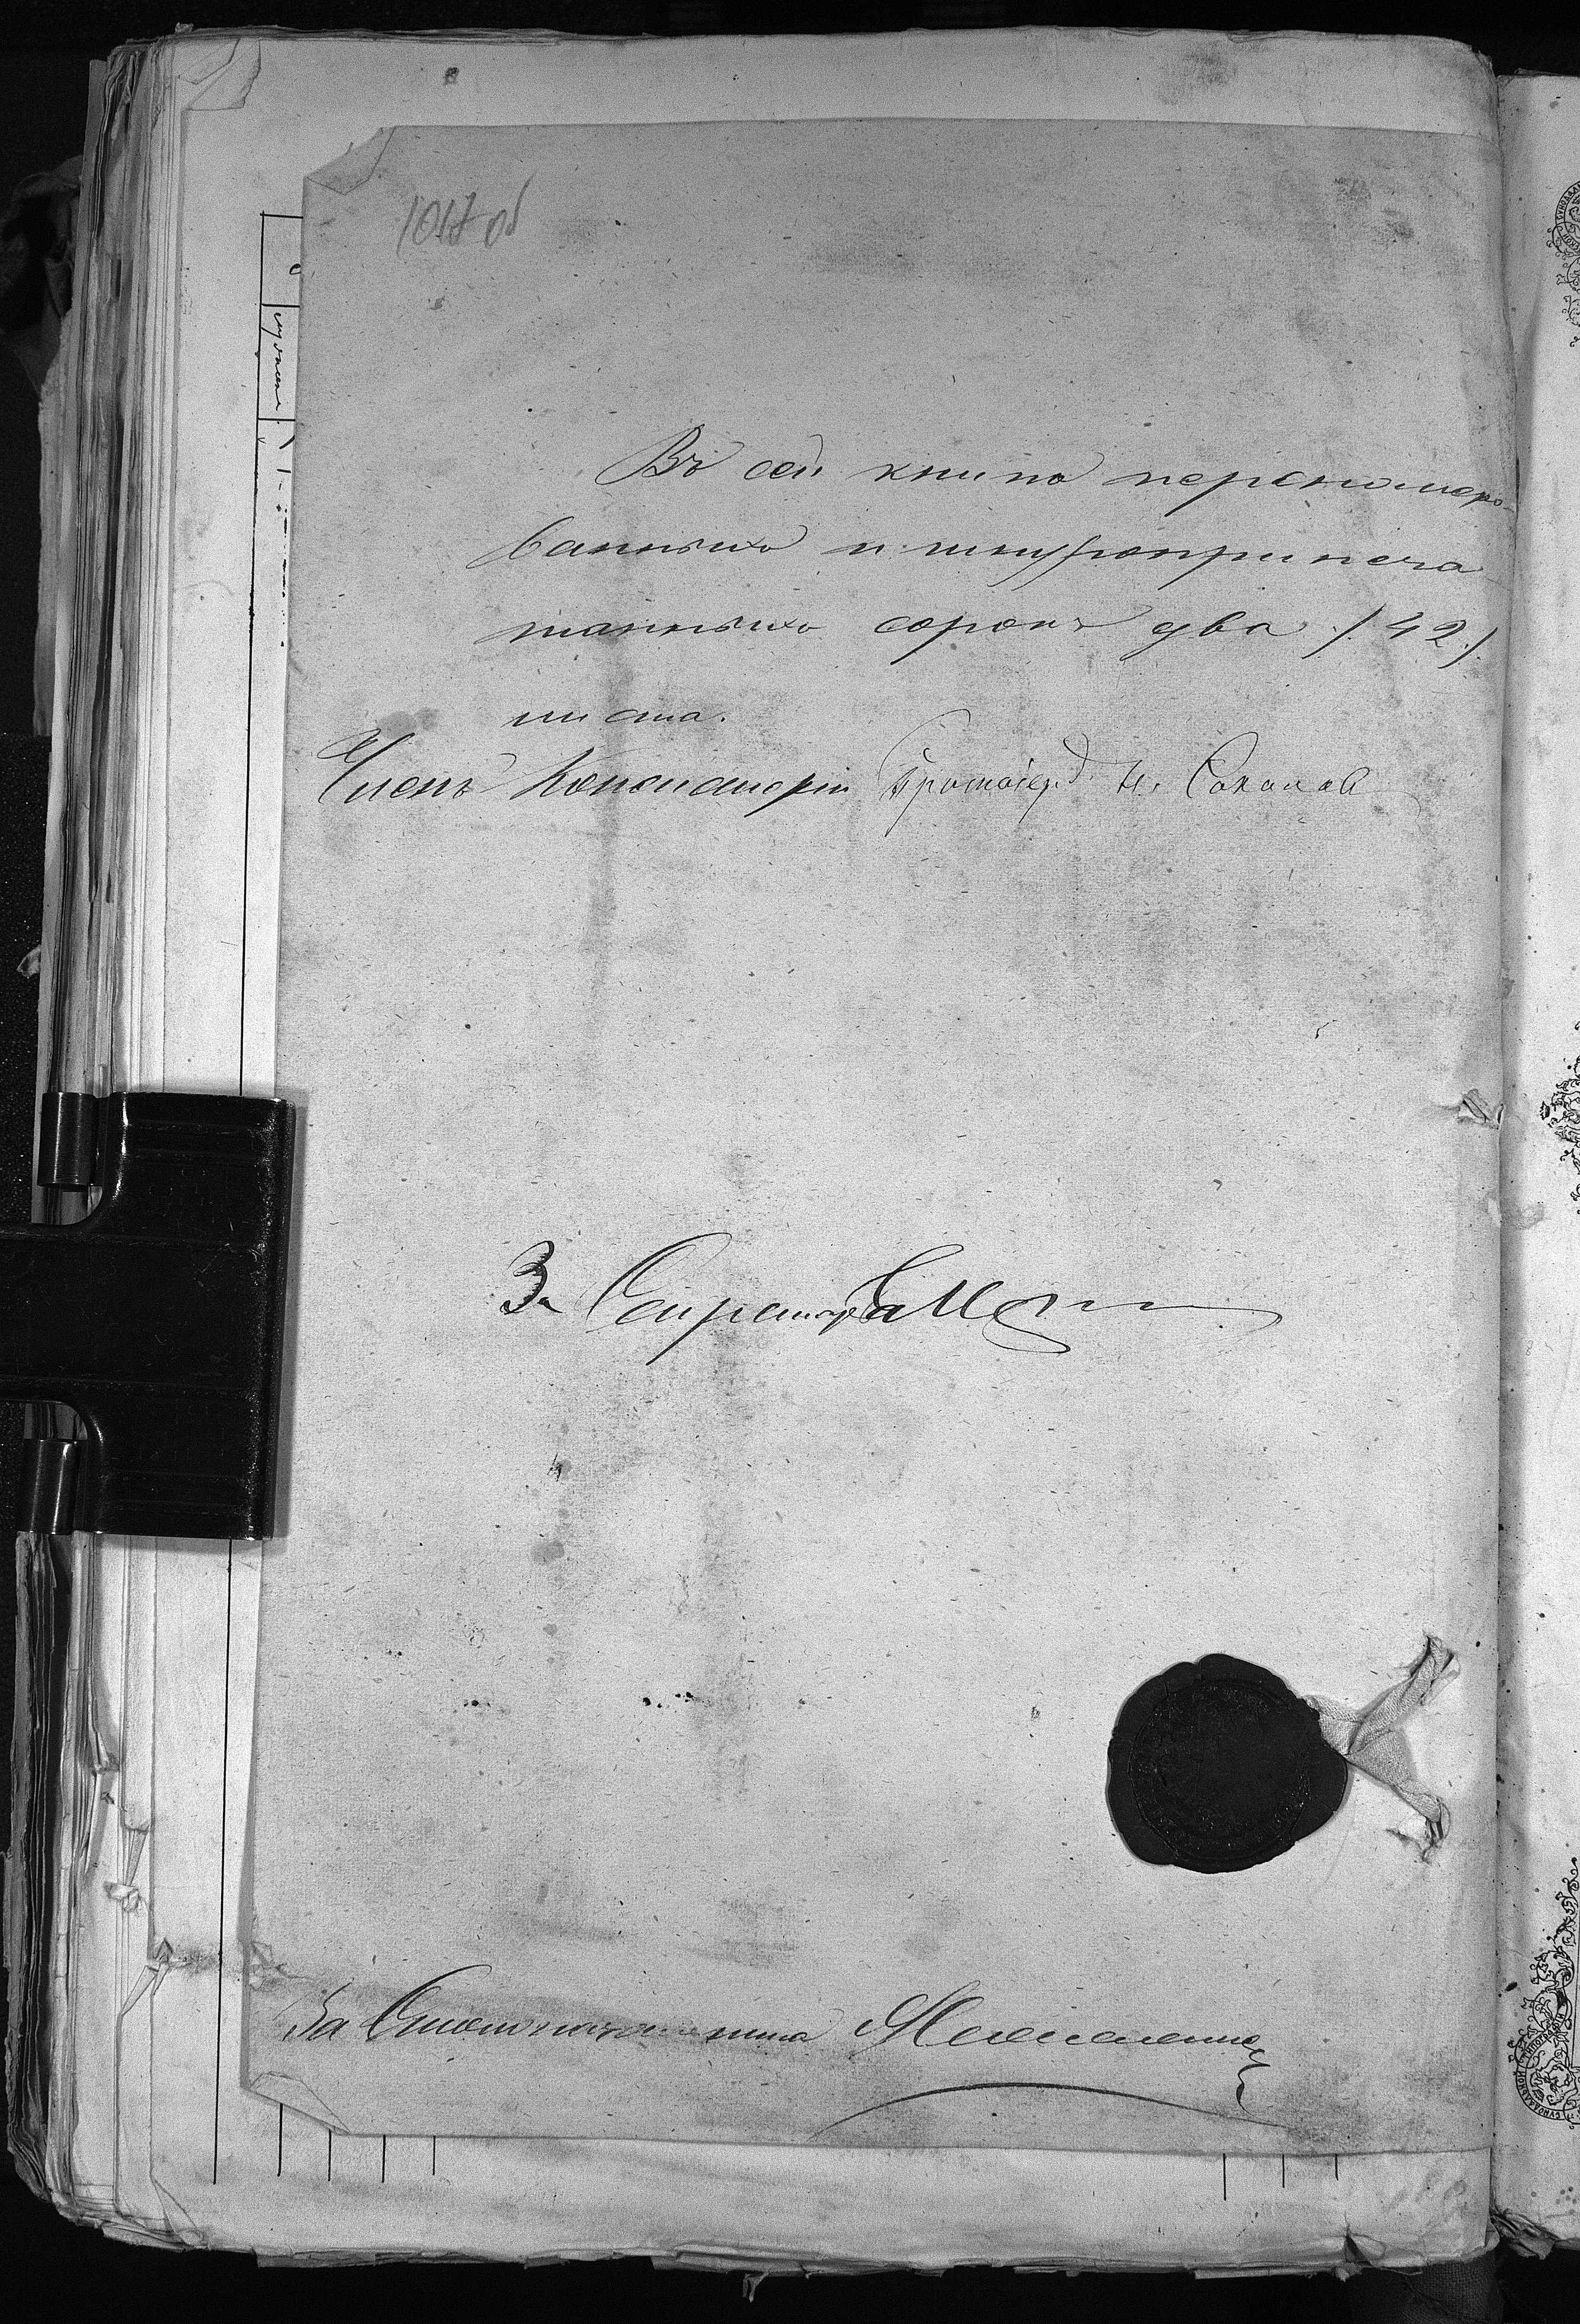 1017 об
Въ сей книгѣ перенумеро-
ванныхъ и шнуроприпеча
танныхъ сорокъ два /42/.
листа.
Членъ Консисторіи Протоіерей Н. Соколовъ
За Секретаря
За Столоначальника